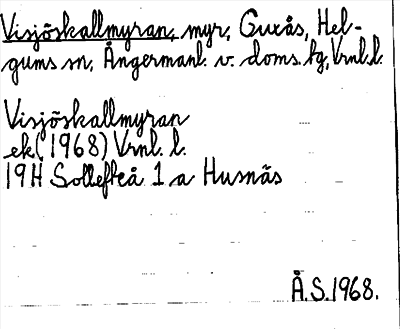 Visjöskallmyran, myr, Guxås, Hel-
gums sn, Ångermanl. v. doms. fg, Vrnl.l.
Visjöskallmyran
ek (1968) Vrnl. l.
19H Sollefteå 1 a Husnäs
Å.S. 1968.